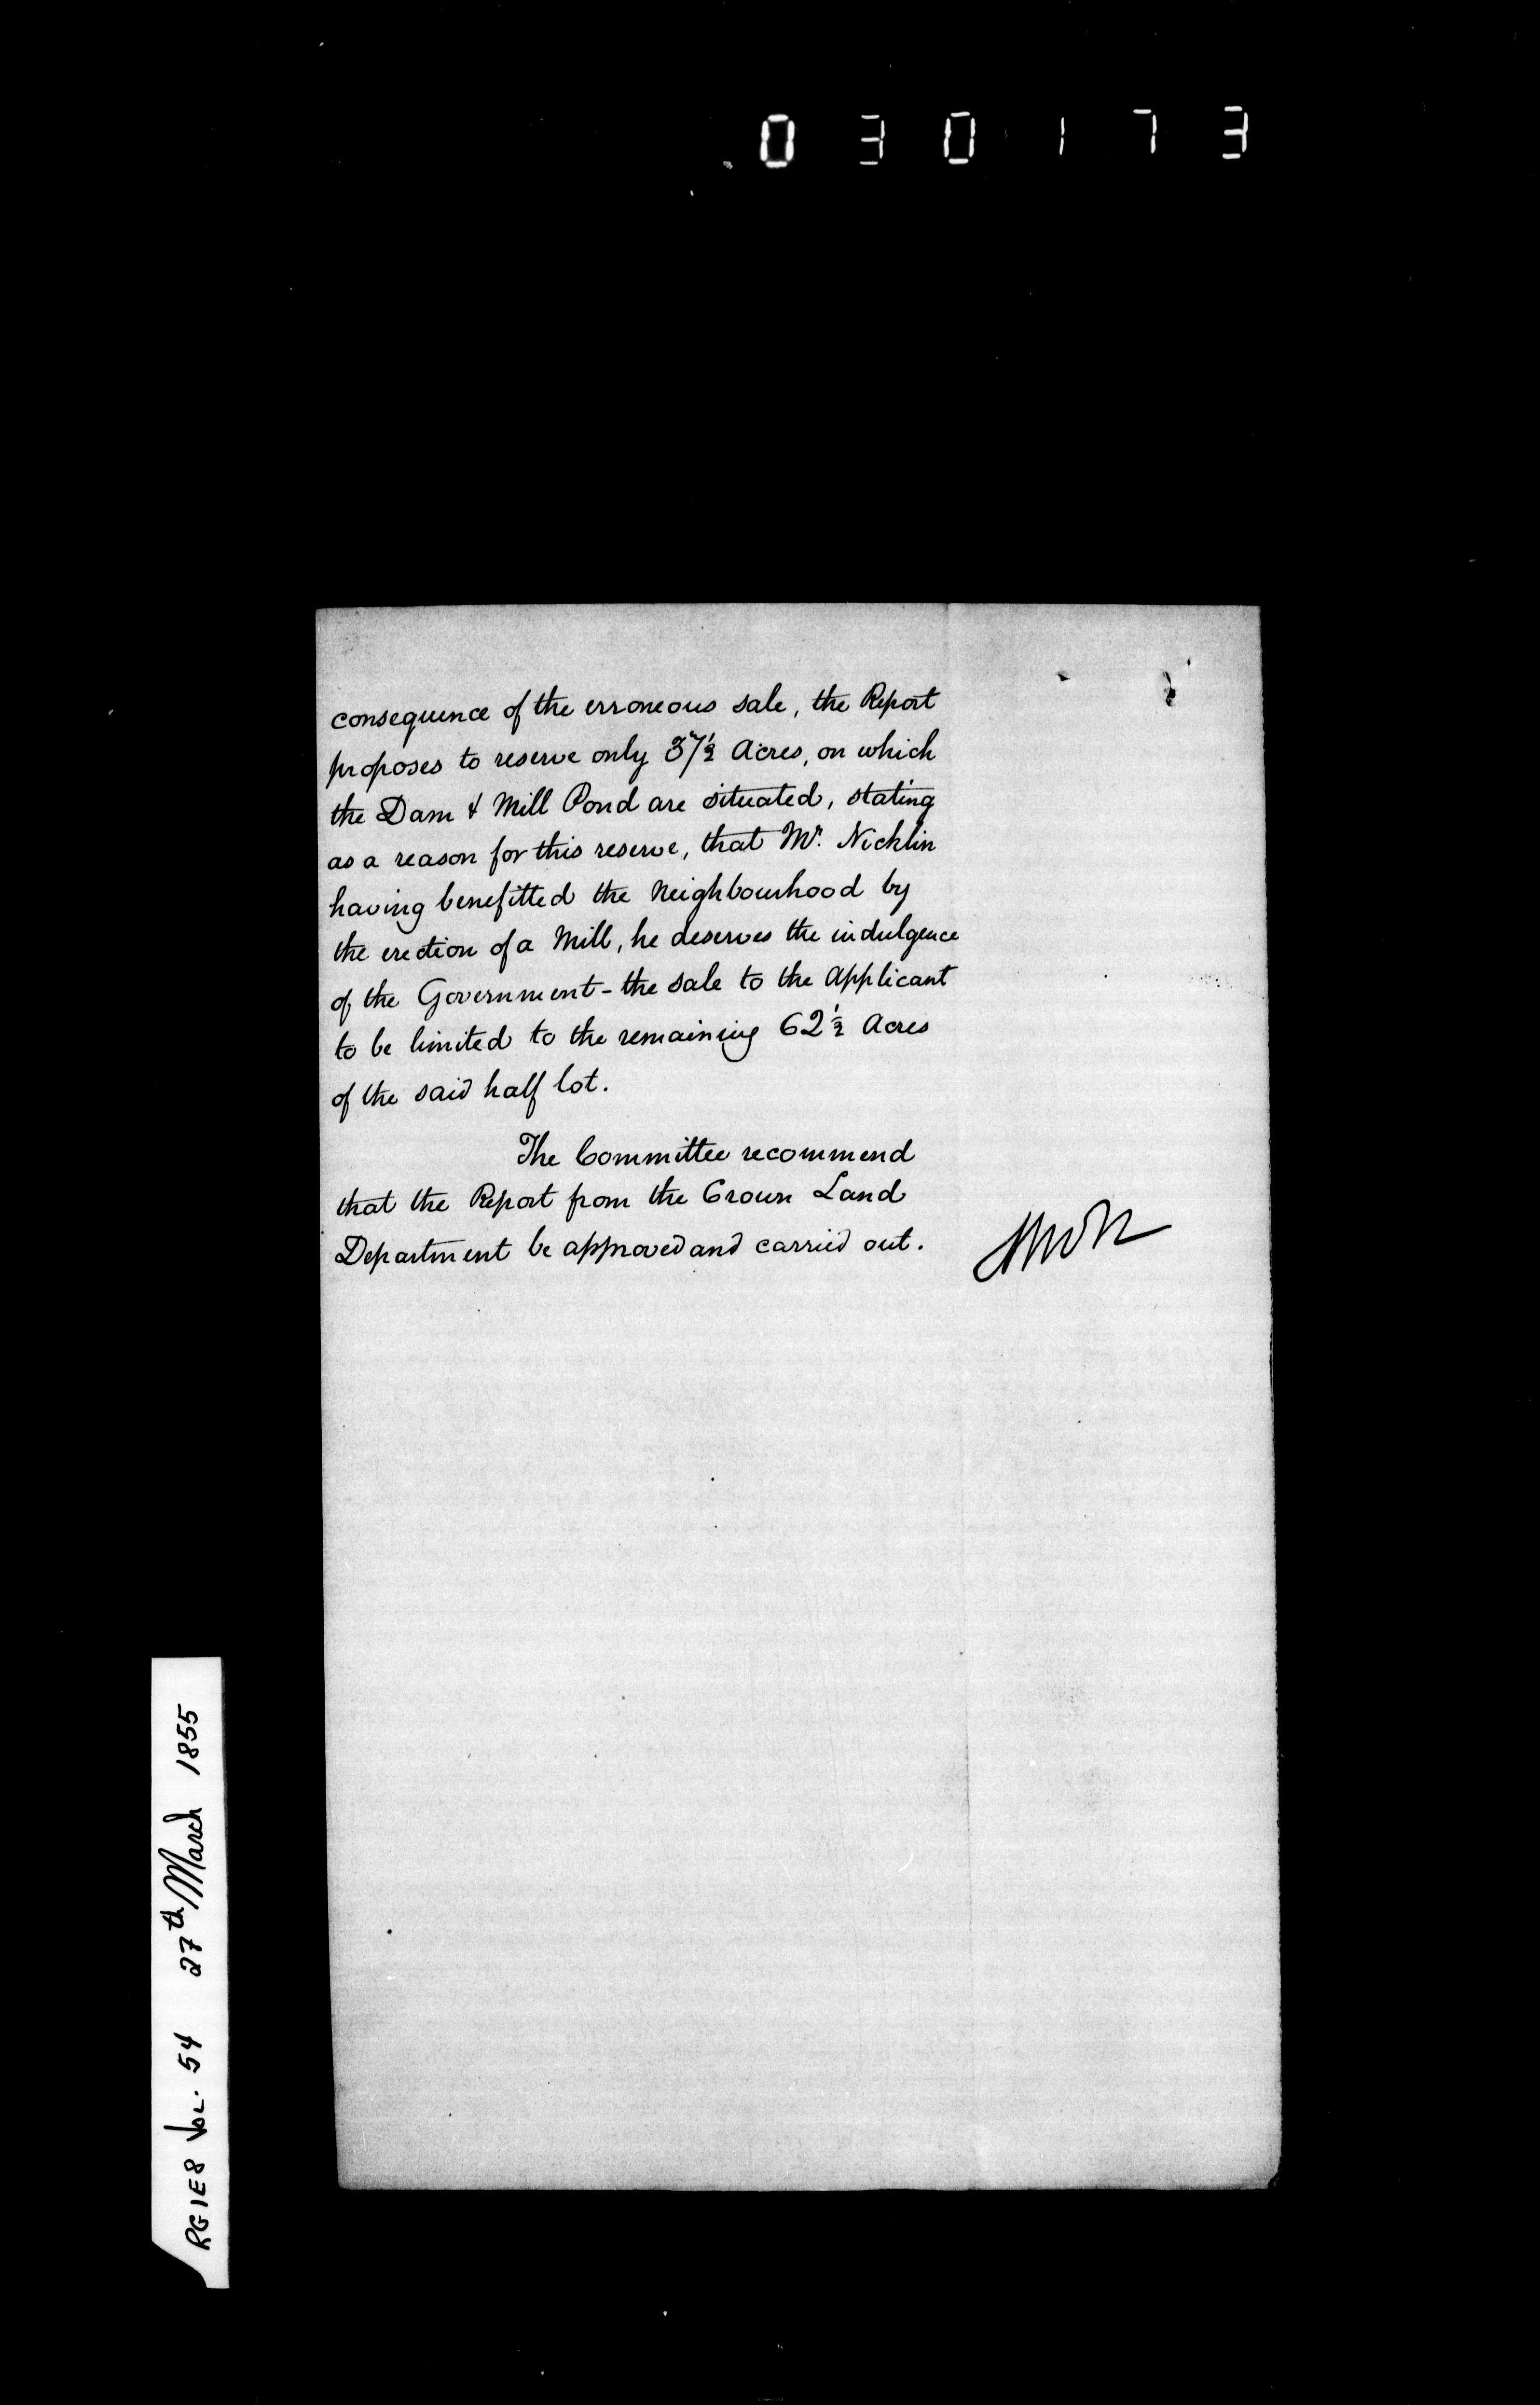 030173
consequence of the erroneous sale, the Report
proposes to reserve only 37½ Acres, on which
the Dam & Mill Pond are situated, stating
as a reason for this reserve, that Mr. Nicklin
having benefitted the Neighbourhood by
the erection of a Mill, he deserves the indulgence
of the Government - the sale to the Applicant
to be limited to the remaining 62½ Acres
of the said half lot.
The Committee recommend
that the Report from the Crown Land
Department be approved and carried out.
RG1E8 Vol. 54 27th March 1855